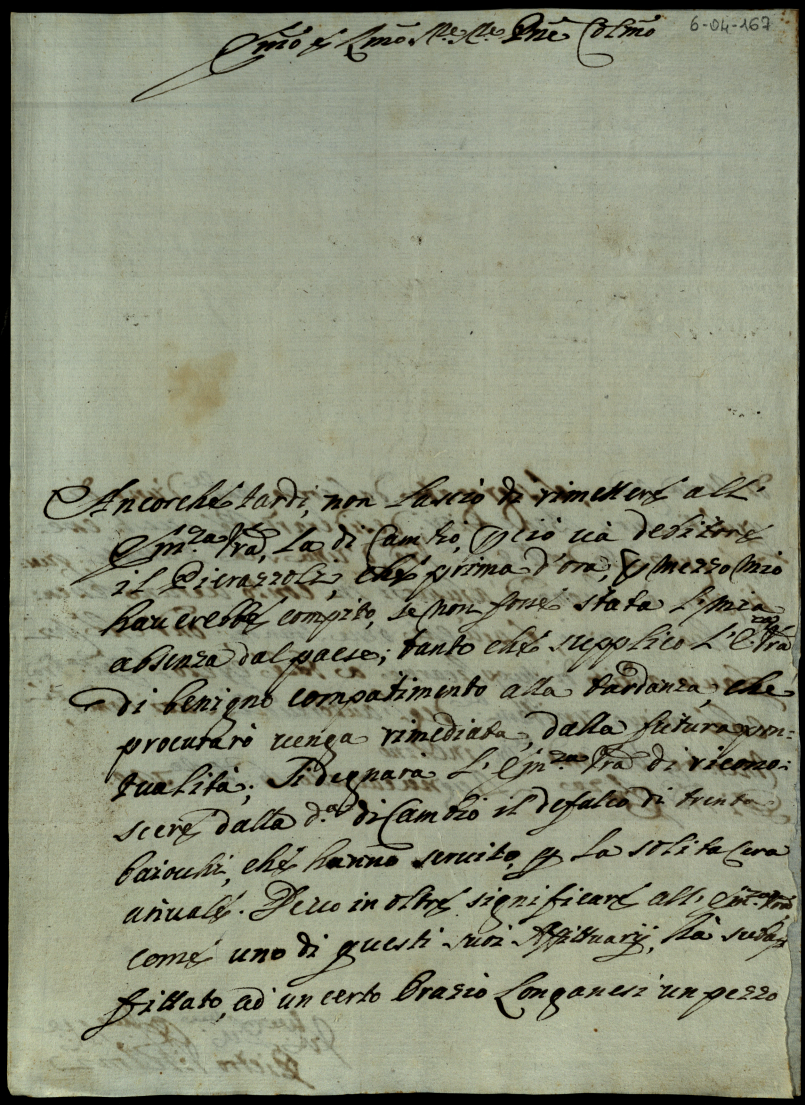 6-04-167
Em̃o e Rm̃o Sig.re Sig.re Pñe Colm̃o
Ancorche tardi, non lascio di rimettere all'
Em.za Vra, la di Cambio, ꝑ ciò uà debitore
il Pierazzoli, che prima d'ora, ꝑ mezzo mio
hauerebbe compito, se non fosse stata l. mia
absenza dal paese; tanto che supplico l'E. Vra
di benigno compatimento alla tardanza, che
procurarò uenga rimediata, dalla futura pon-
tualità; Si degnarà l'Em.za Vra di ricono-
scere dalla d.a di Cambio il defalco di trenta
baiochi, che hanno seruito, ꝑ la solita Cera
añuale. Deuo in oltre significare all' Em.za Vra
come uno di questi suoi Affittuarij, hà subaf
fittato, ad un certo Orazio Longanesi un pezzo